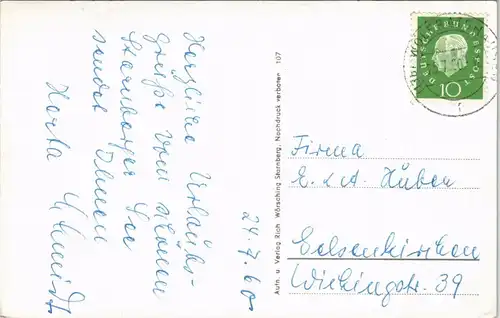 Herzliche Urlaubs-
grüße vom schönen
Starnberger See
sendet Ihnen
Herta Schmidt
24.7.60
Aufn. u. Verlag Rich. Wörsching Starnberg, Nachdruck verboten 107
DEUTSCHE BUNDESPOST
10
Firma
E. u. A. Huben
Gelsenkirchen
Wickingstr. 39